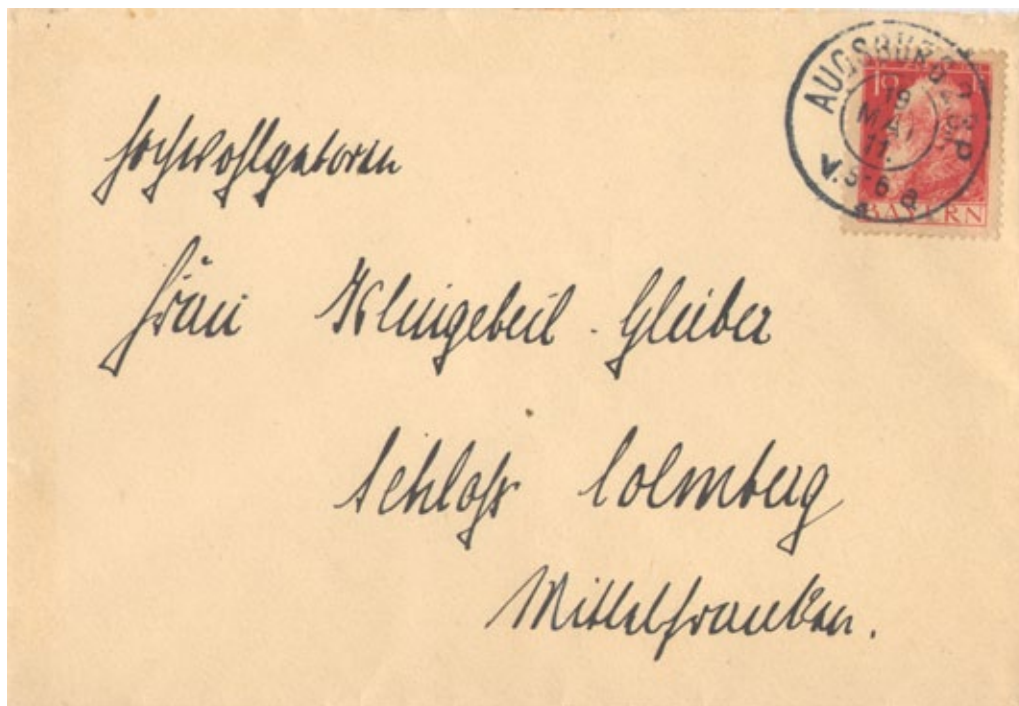 AUGSBURG
19
MAI
11.
V.5-6
10
BAYERN
Hochwohlgeboren
Frau Klingebeil-Gleiber
Schloß Colmberg
Mittelfranken.